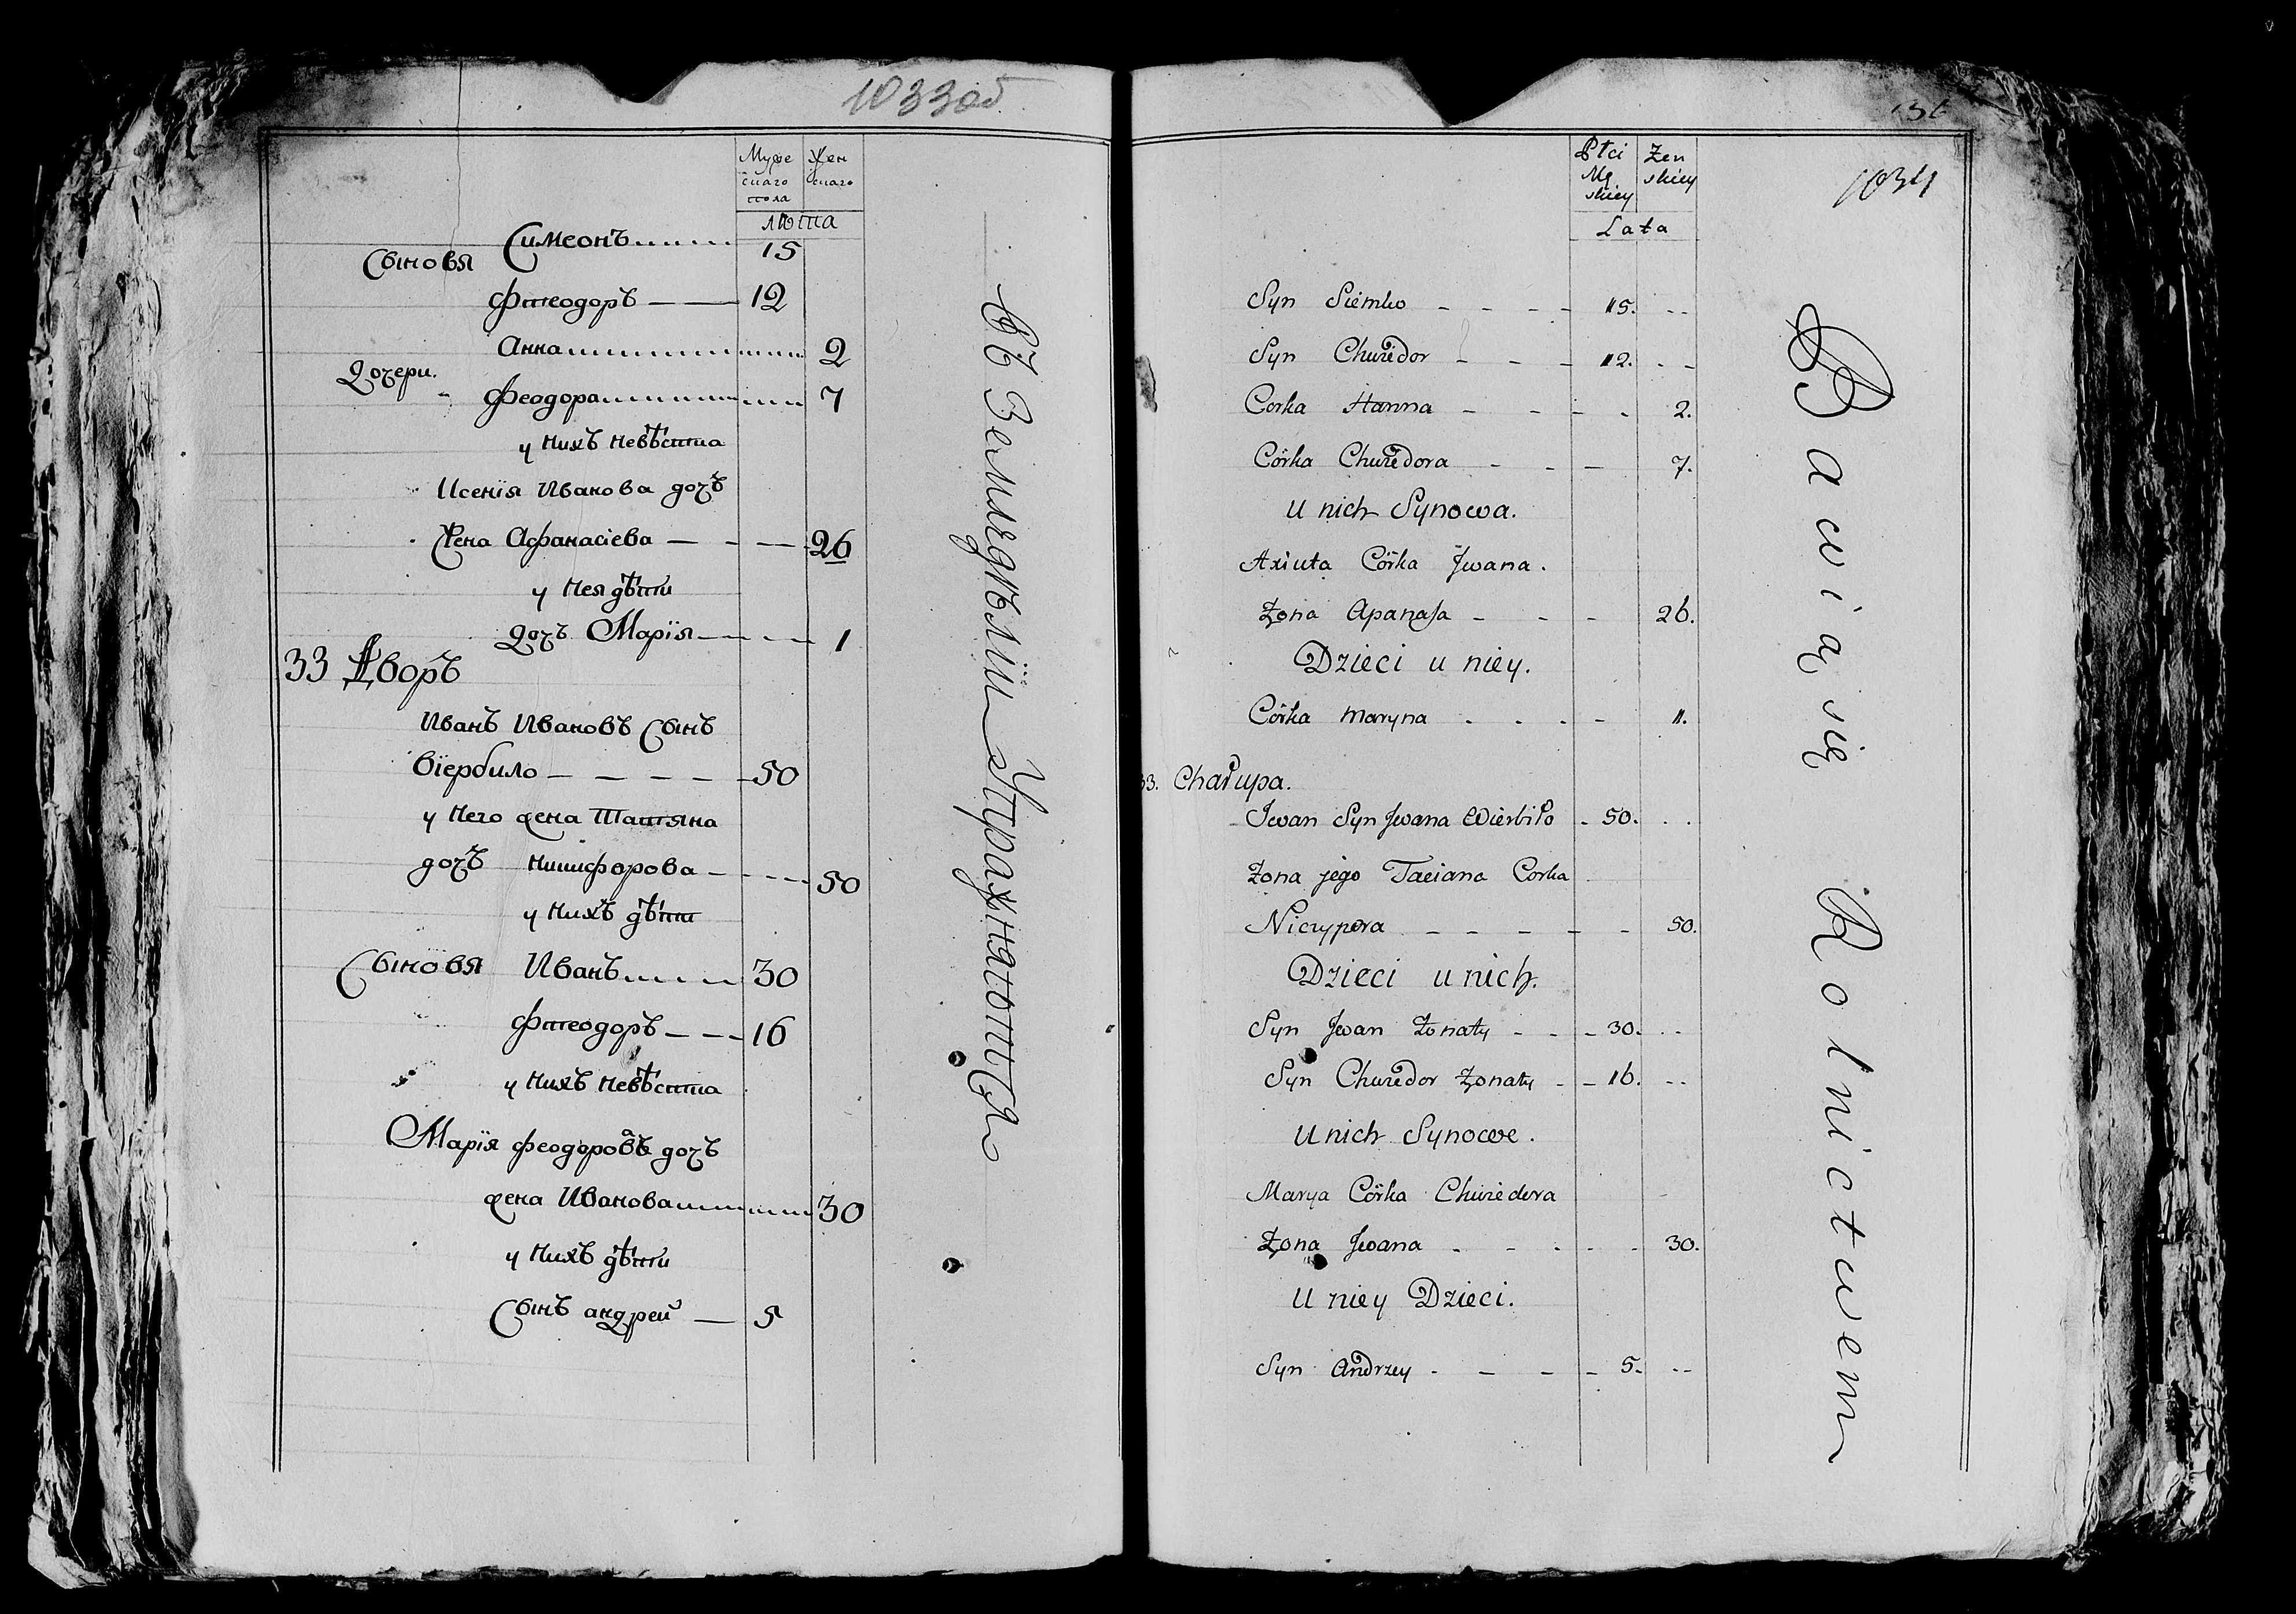 1033 об
Муже Жен
скаго скаго
пола
лѣта
Симеонъ 15
Сыновя
Фтеодоръ 12
Анна 2
Дочери.
Феодора 7
у нихъ невѣста
Ксенїя Иванова дочъ
Жена Афанасіева 26
у нея дѣти
Дочъ Марїя 1
33 Дворъ
Иванъ Ивановъ Сынъ
Вїербило 50
у него жена Татяна
дочъ никифорова 50
у нихъ дѣти
Сыновя Иванъ 30
Фтеодоръ 16
у нихъ невѣста
Марїя феодорова дочъ
жена Иванова 30
у нихъ дѣти
Сынъ андрей 5
Въ Земледѣлїи Упражнаютця
136
1034
Płci Żen
Mę skiey
skiey
Lata
Syn Siemko - - - - 15. - -
Syn Chwiedor - - - 12. - -
Corka Hanna - - - - 2.
Córka Chwiedora - - - 7.
U nich Synowa.
Axiuta Córka Jwana.
Żona Apanasa - - - 26.
Dzieci u niey.
Córka Maryna - - - - 1.
33. Chałupa.
Jwan Syn Jwana Wierbiło - 50. - -
Żona jego Taciana Corka
Niczypora - - - - - 50.
Dzieci u nich.
Syn Jwan Żonaty - - - 30. - -
Syn Chwiedor Żonaty - - 16. - -
U nich Synowe.
Marya Córka Chwiedora
Żona Jwana - - - - - 30.
U niey Dzieci.
Syn Andrzey - - - - 5. - -
Bawią się Rolnictwem